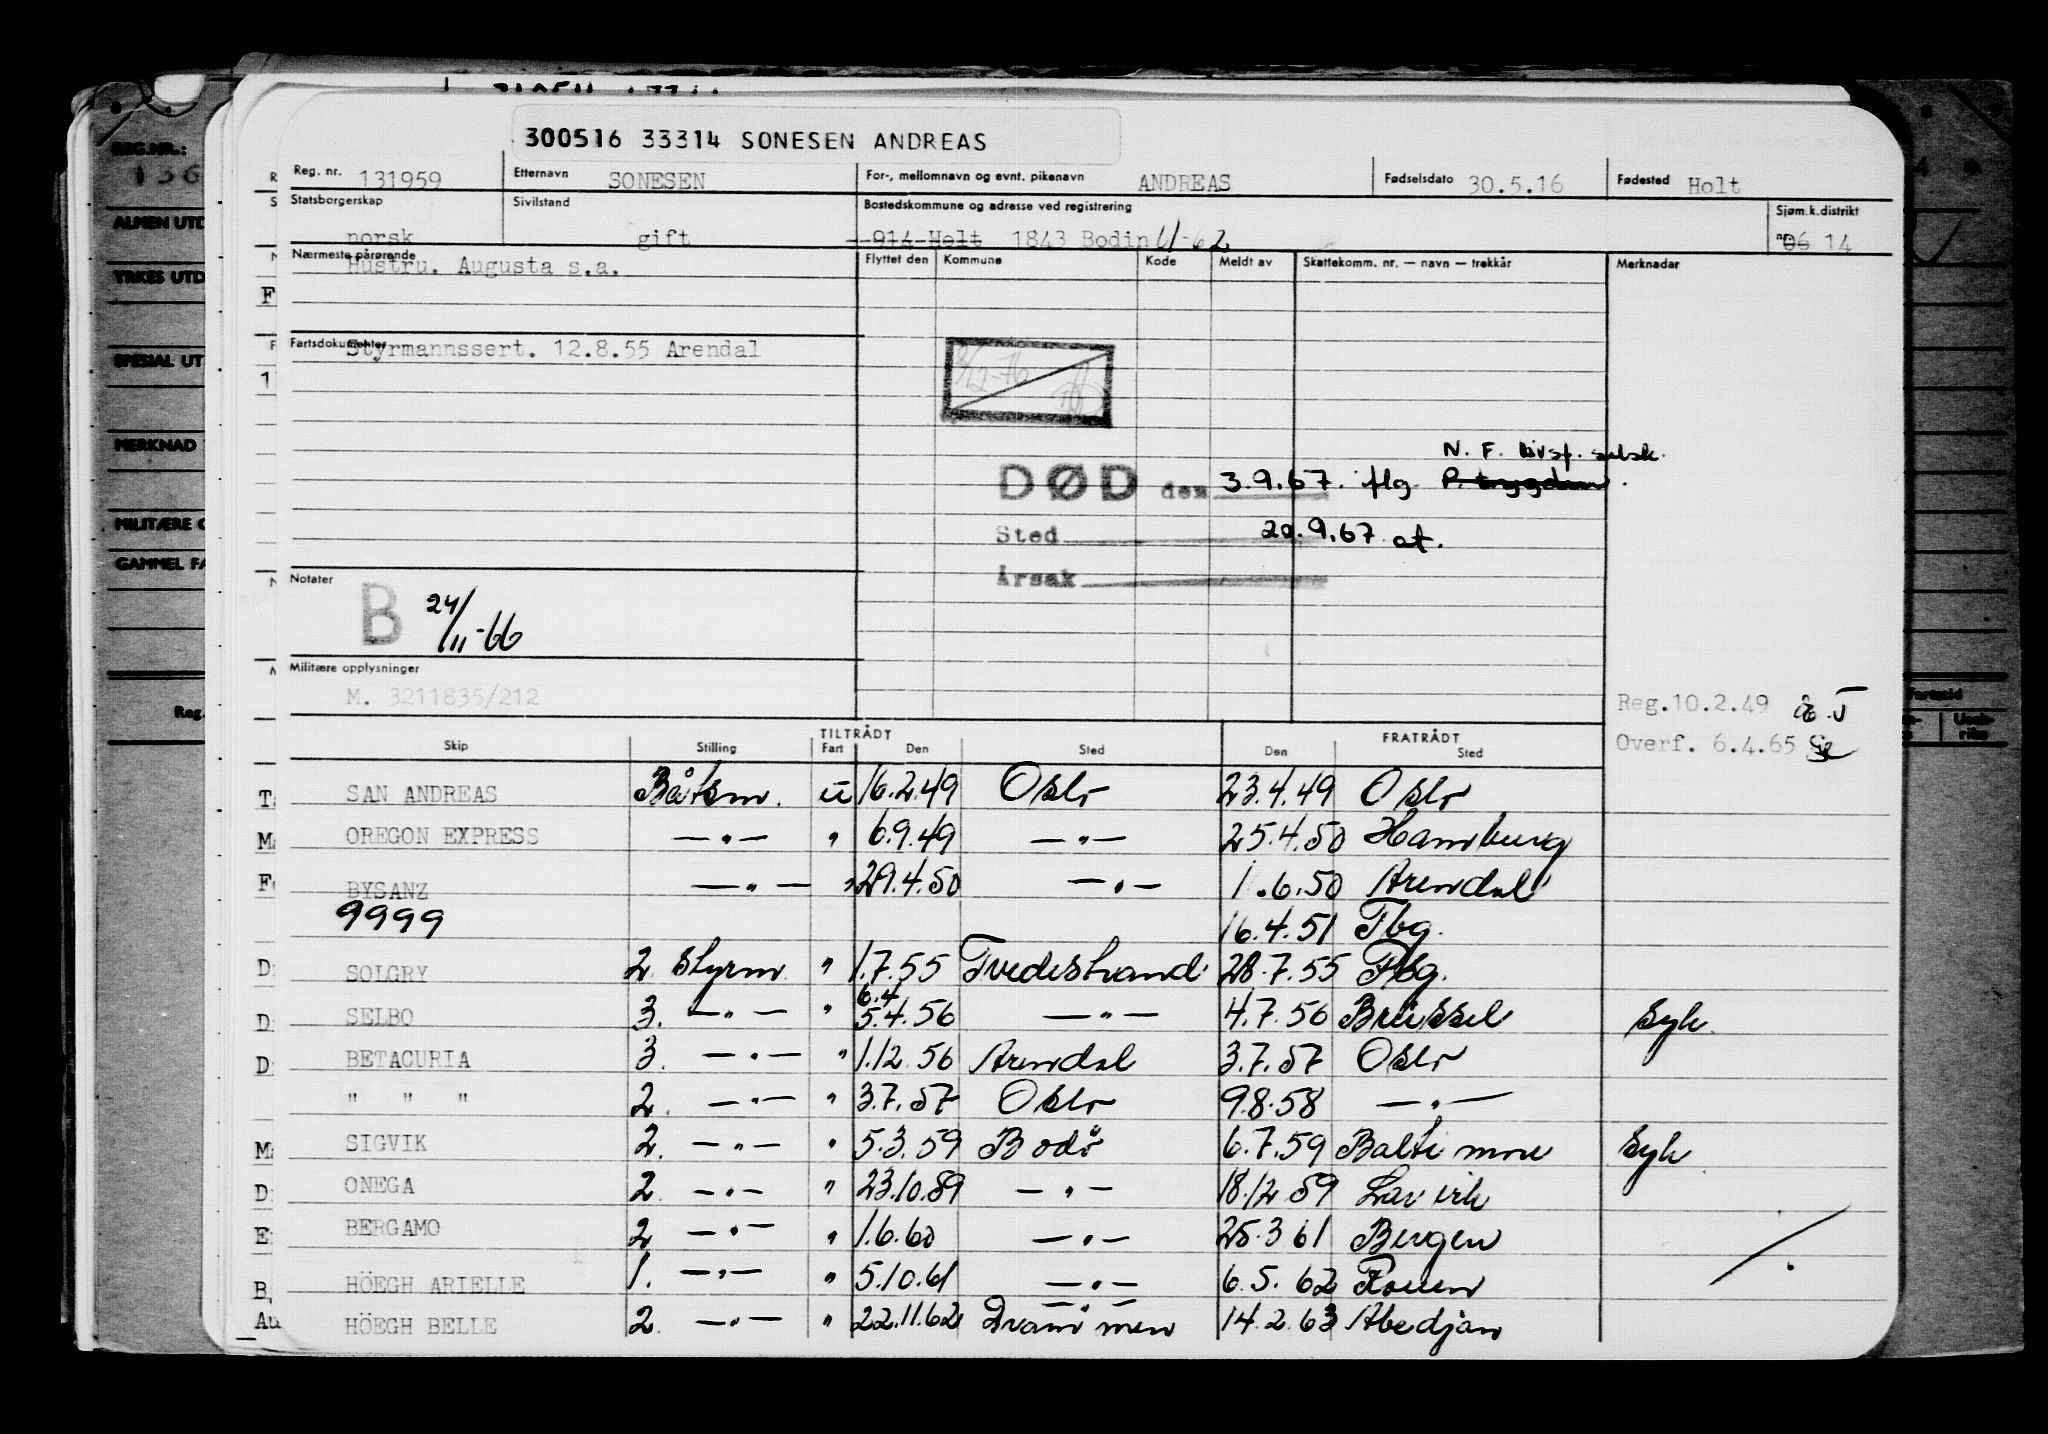 300516 33314 SONESEN ANDREAS
Reg. nr. 131959 Etternavn SONESEN For-, mellomnavn og evnt. pikenavn ANDREAS Fødselsdato 30.5.16 Fødested Holt
Statsborgerskap norsk Sivilstand gift Bostedskommune og adresse ved registrering 914 Holt 1843 Bodin 11-62 Sjøm.k.distrikt nr. 06 14
Nærmeste pårørende Hustru. Augusta s.a. Flyttet den Kommune Kode Meldt av Skattekomm. nr. — navn — trekkår Merknadar
Fartsdokumenter Styrmannssert. 12.8.55 Arendal
2/12-76
N. F. livsf. selsk.
DØD den 3.9.67. flg. P. trygden.
Sted 20.9.67 at.
Årsak
Notater
B 24/11-66
Militære opplysninger
M. 3211835/212
Reg.10.2.49
Overf. 6.4.65
TILTRÅDT FRATRÅDT
Skip Stilling Fart Den Sted Den Sted
SAN ANDREAS Båtsm. u 16.2.49 Oslo 23.4.49 Oslo
OREGON EXPRESS —"— " 6.9.49 —"— 25.4.50 Hamburg
BYSANZ —"— " 29.4.50 —"— 1.6.50 Arendal
9999 16.4.51 Tbg.
SOLGRY 2. Styrm " 1.7.55 Tvedestrand 28.7.55 Fbg.
6.4
SELBO 3. —"— " 5.4.56 —"— 4.7.56 Brüssel Syk.
BETACURIA 3. —"— " 1.12.56 Arendal 3.7.57 Oslo
" " " 2. —"— " 3.7.57 Oslo 9.8.58 —"—
SIGVIK 2. —"— " 5.3.59 Bodö 6.7.59 Baltimore Syk
ONEGA 2. —"— " 23.10.59 —"— 18.12.59 Larvik
BERGAMO 2 —"— " 1.6.60 —"— 25.3 61 Bergen
HÖEGH ARIELLE 1. —"— " 5.10.61 —"— 6.5.62 Rouen
HÖEGH BELLE 2. —"— " 22.11.62 Drammen 14.2.63 Abedjan
REG.NR.:
136
ALMEN UTD
YRKES UTD
SPESIAL UT
MERKNAD
MILITÆRE O
GAMMEL FA
Reg.